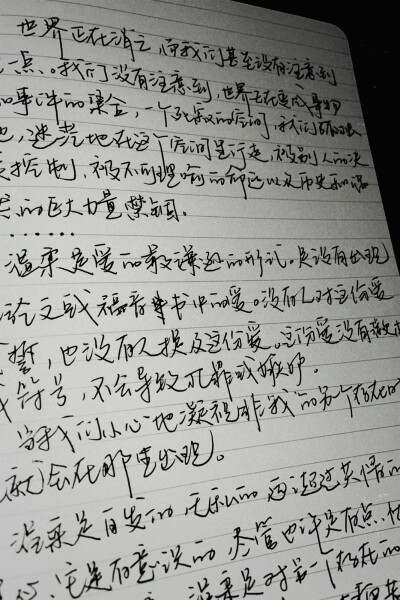 世界正在消亡,而我们甚至没有注意到
一点。我们没有注意到,世界正在变成事物
和事件的集合,一个死寂的空间,我们孤独
地,迷茫地在这个空间里行走,被别人的决
定控制,被不可理喻的命运以及历史和偶
然的巨大力量禁锢。
……
温柔是爱的最谦逊的形式。是没有出现
论文或福音书中的爱。没有人对这份爱
誓,也没有人提及这份爱。这份爱没有
或符号,不会导致犯罪或嫉妒。
当我们小心地凝视非我的另个存在时
就会在那里出现。
温柔是自发的、无私的、远超过共情的
它是有意识的,尽管也许是有点
温柔是对另一个存在的